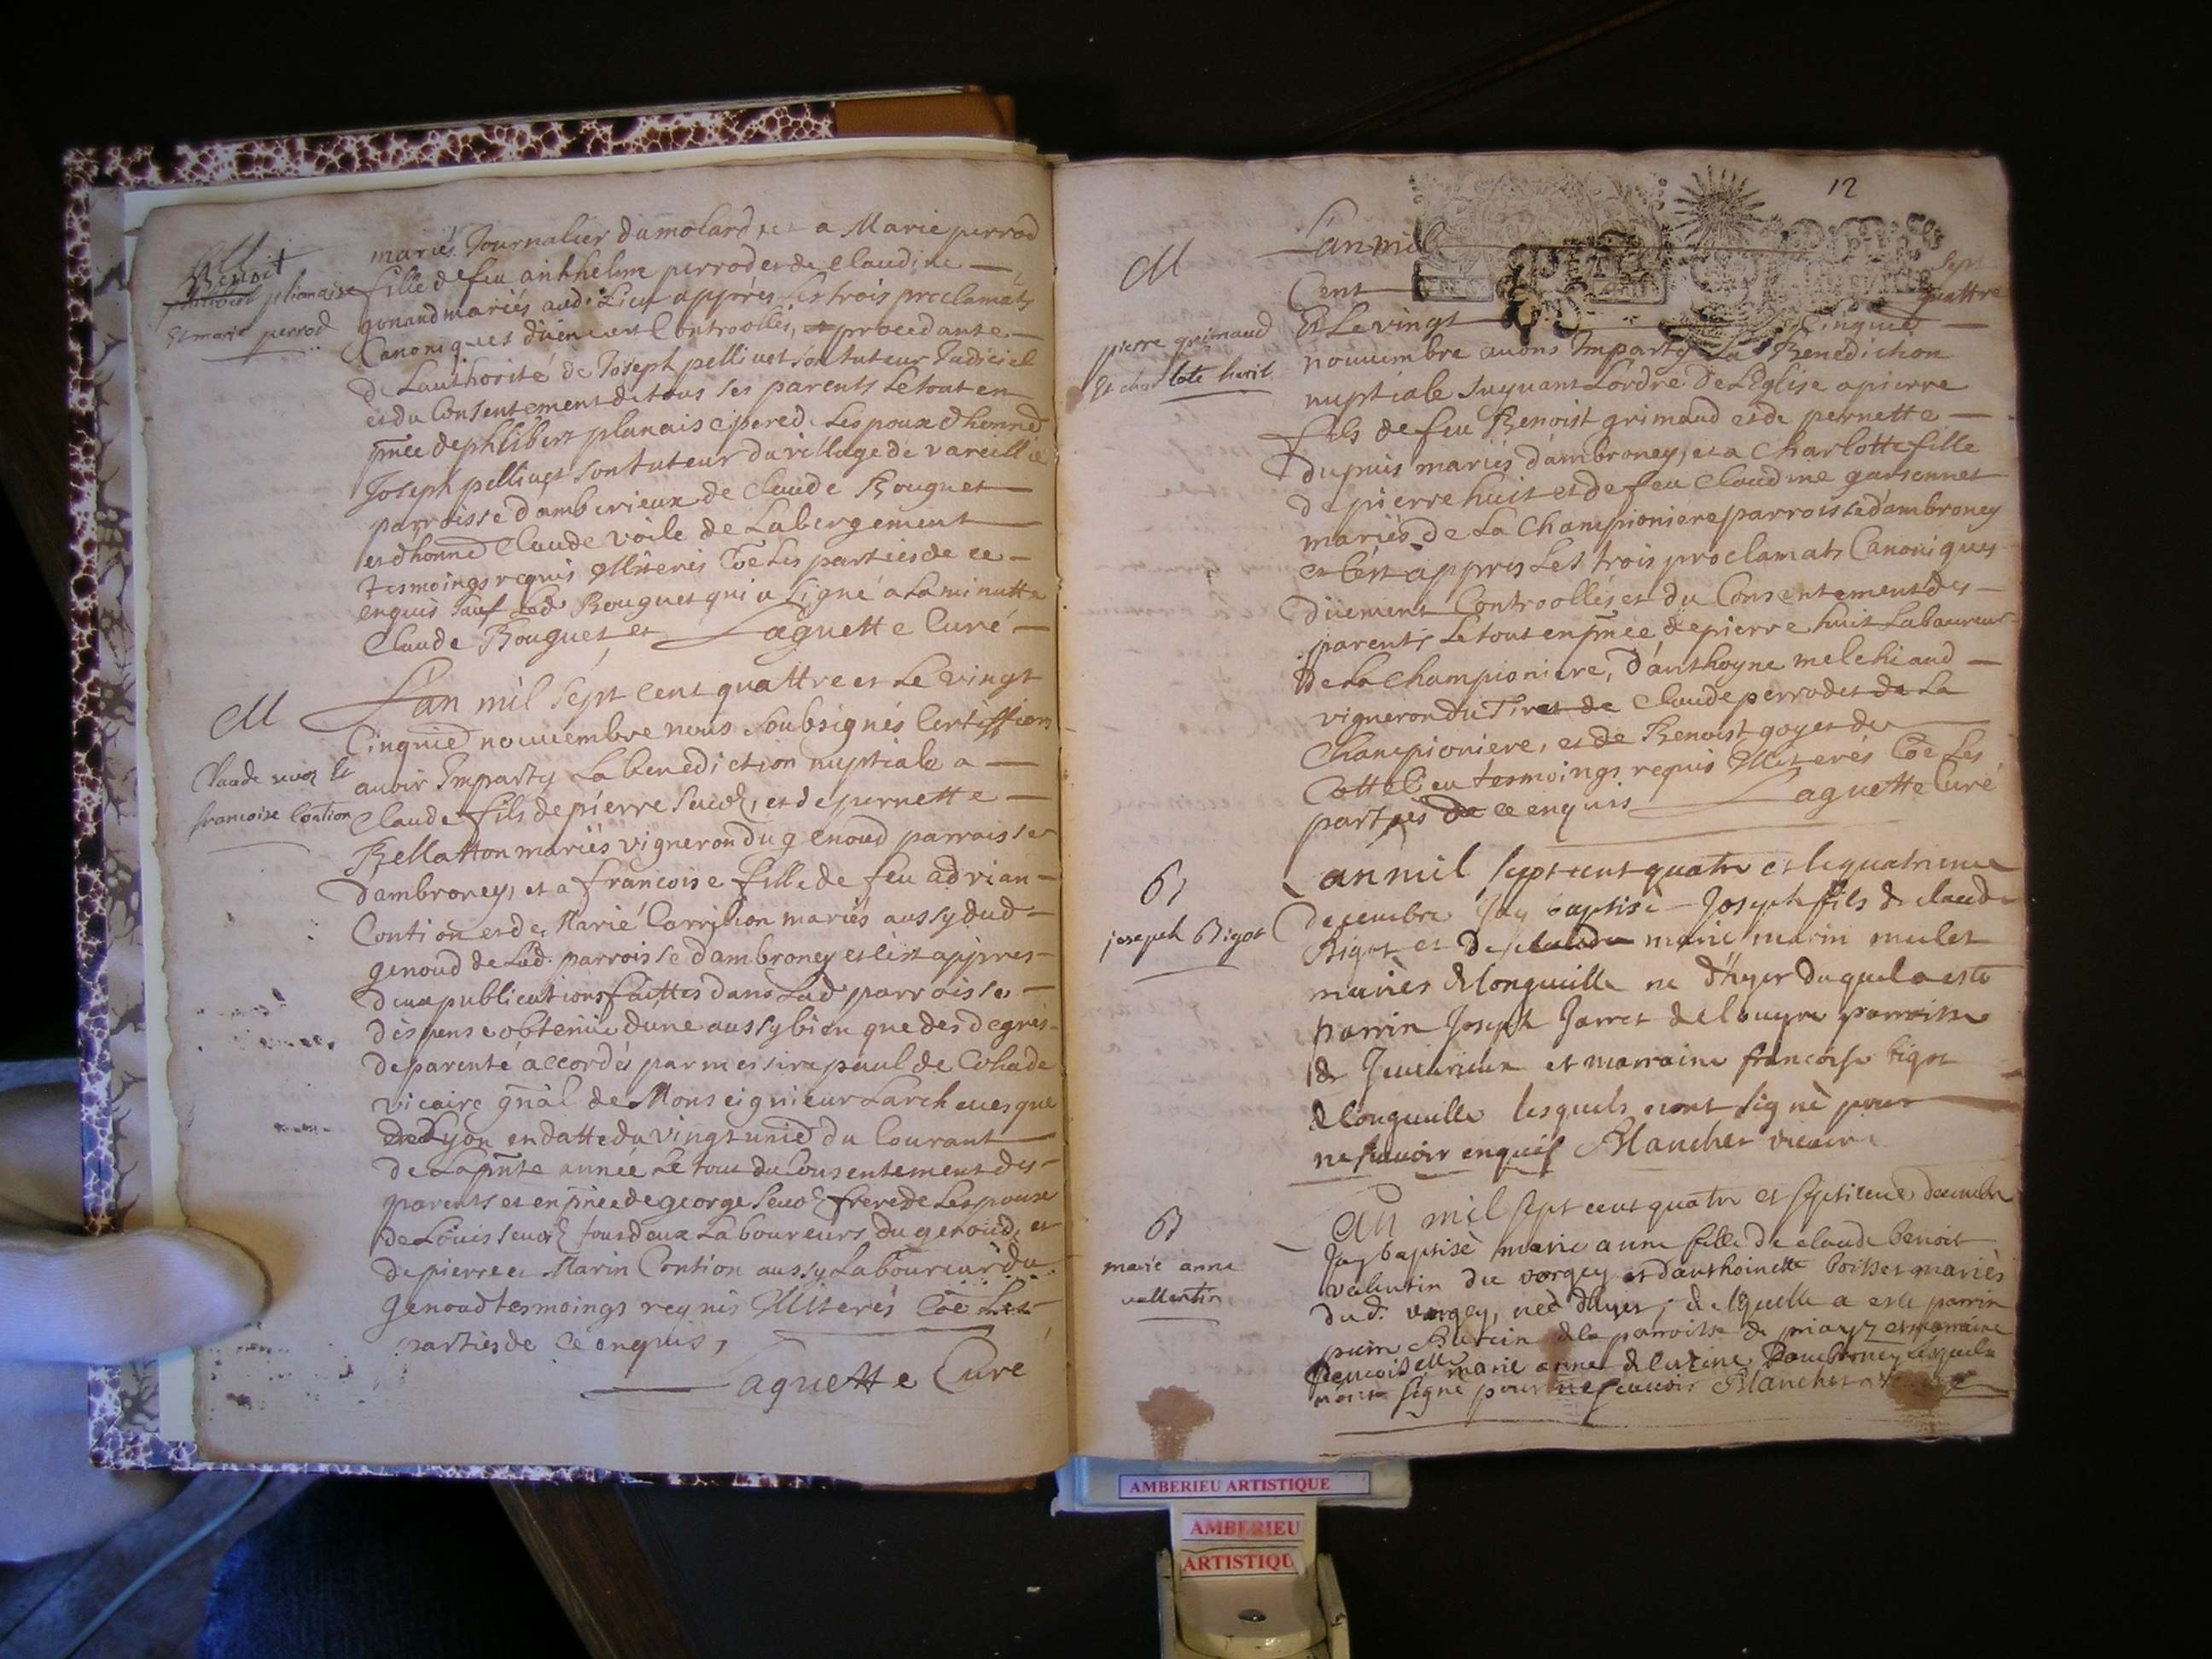 M
Benoit
plionaise
Et marie perrod
mariés Journalier du molard, et a Marie perrod
fille de feu anthelme perrod et de Claudine
gonand mariés aud. Lieu appres les trois proclamats
Canoniques düement Controollés, et procedante
de Lauthorité de Joseph pellivet son tuteur Judiciel
et du Consentement de tous ses parents le tout en
pñce de phlibert planais pere de Lespoux d honned
Joseph pellivet son tuteur du village de vareillie
parroisse damberieux de Claude Bouguet
et dhonned Claude voile de Labergement
tesmoings requis Illiterés Coe Les parties de ce
enquis sauf Led. Bouguet qui a signé a La minutte
Claude Bouguet et Laguette Curé
M
Claude sevoz Et
francoise Contion
L'an mil sept cent quattre et Le vingt
Cinquie nouvembre nous soubsignés Certiffions
avoir Imparty La benediction nuptiale a
Claude fils de pierre sevoz, et de pernette
Bellatton mariés vigneron du genoud parroisse
dambroney, et a francoise fille de feu adrian
Contion et de Marie Carrilion mariés aussy dud
genoud de Lad. parroisse dambroney et c'est appres
deux publications faittes dans Lad parroisse
dispense obtenüe dune aussy bien que des degrés
de parente accordés par messire paul de Cohade
vicaire gñal de Monseigneur Larchevesque
de Lyon en datte du vingt unie du Courant
de La pñte année Le tout du Consentement des
parents et en pñce de george sevoz frere de Lespoux
de Louis sevoz tous deux Laboureurs du genoud, et
de pierre et Marin Contion aussy Laboureur du
genoud tesmoings requis Illiterés Coe Les
parties de ce enquis,
Laguette Curé
12
M
pierre grimaud
Et charlote huit
L'an mil sept
Cent quattre
Et Le vingt Cinquie
nouvembre avons Imparty La Benediction
nuptiale suyvant Lordre de Leglise a pierre
fils de feu Benoist grimaud et de pernette
dupuis mariés d'ambroney, et a Charlotte fille
de pierre huit et de feu Claudine garsonnet
mariés de La Championiere parroisse d'ambroney
et c'est appres Les trois proclamats Canoniques
düement Controollés et du Consentement des
parents Le tout en pñce de pierre huit Laboureur
de La Championiere, d'anthoyne melchiand
vigneron du Tiret de Claude perrodet de La
Championiere, et de Benoist goyet du
Cottelieu tesmoings requis Illiterés Coe Les
parties de ce enquis Laguette Curé
B
joseph Bigot
L an mil sept cent quatre et le quatrieme
decembre Jay baptisé Joseph fils de claude
Bigot et de marie marin mulet
mariès de longeville ne d'hyer duquel a esté
parrin Joseph Jarret de louyre parroisse
de Jeurieux et marraine francoise bigot
de longeville lesquels n'ont signè pour
ne scavoir enquis Blanchet vicaire
B
marie anne
vallentin
L an mil sept cent quatre et septieme decembre
Jay baptisè marie anne fille de claude benoit
valentin du vorgey et danthoinette boisset mariès
dud. vorgey, neè d'hyer, de lequelle a este parrin
de la parroisse de priay et marraine
demoiselle marie anne de dambroney lesquels
n'ont signè pour ne scavoir Blanchet vicaire
AMBERIEU ARTISTIQUE
AMBERIEU
ARTISTIQU